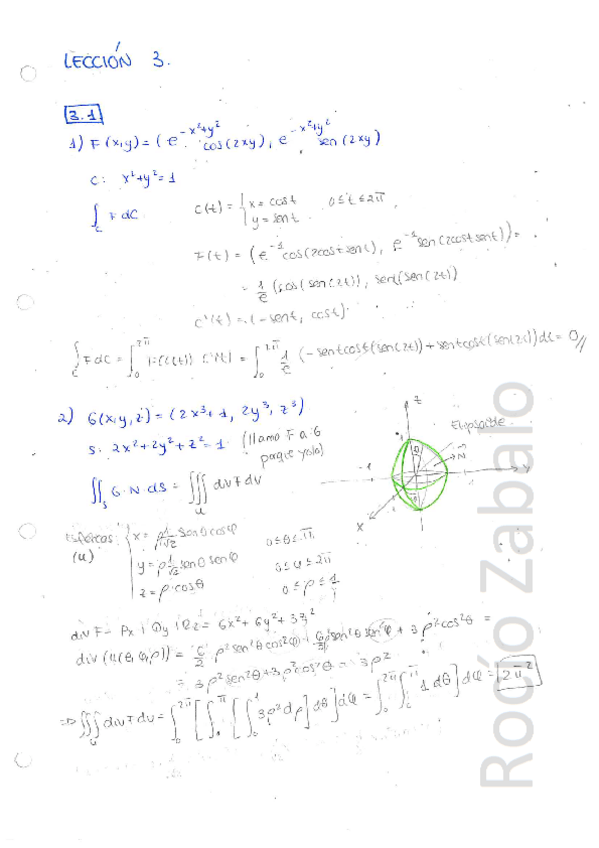 LECCIÓN 3.
3.1
1) F(x,y) = (e^{-x²+y²} cos(2xy), e^{-x²+y²} sen(2xy)
C: x²+y²=1
∫_C F dC
C(t) = { x = cost 0≤t≤2π,
y = sent.
F(t) = (e^{-1} cos(2costsent), e^{-1} sen(2costsent)) =
= 1/e (cos(sen(2t)), sen(sen(2t))
C'(t) = (-sent, cost).
∫_C F dC = ∫_0^{2π} F(C(t)) C'(t) = ∫_0^{2π} 1/e (-sentcost(sen(2t)) + sentcost(sen(2t)) dt = 0//
2) G(x,y,z) = (2x³+1, 2y³, z³)
S: 2x²+2y²+z²=1 (llamo F a G
porque yolo)
∬_S G·N dS = ∭_U div F dv
Elipsoide
z
N
y
x
1
-1
1
Esféricas (U)
x = ρ 1/√2 senθcosφ 0≤θ≤π
y = ρ 1/√2 senθ senφ 0≤φ≤2π
z = ρ cosθ 0≤ρ≤1
div F = Px + Qy + Rz = 6x²+6y²+3z²
div (U(θ,φ,ρ)) = 6/2 ρ² sen²θcos²φ + 6/2 ρ² sen²θ sen²φ + 3ρ²cos²θ =
= 3ρ² sen²θ + 3ρ²cos²θ = 3ρ²
⇒ ∭_U div F dv = ∫_0^{2π} [∫_0^π [∫_0^1 3ρ² dρ] dθ] dφ = ∫_0^{2π} [∫_0^π 1 dθ] dφ = 2π²
Rocío Zabalo